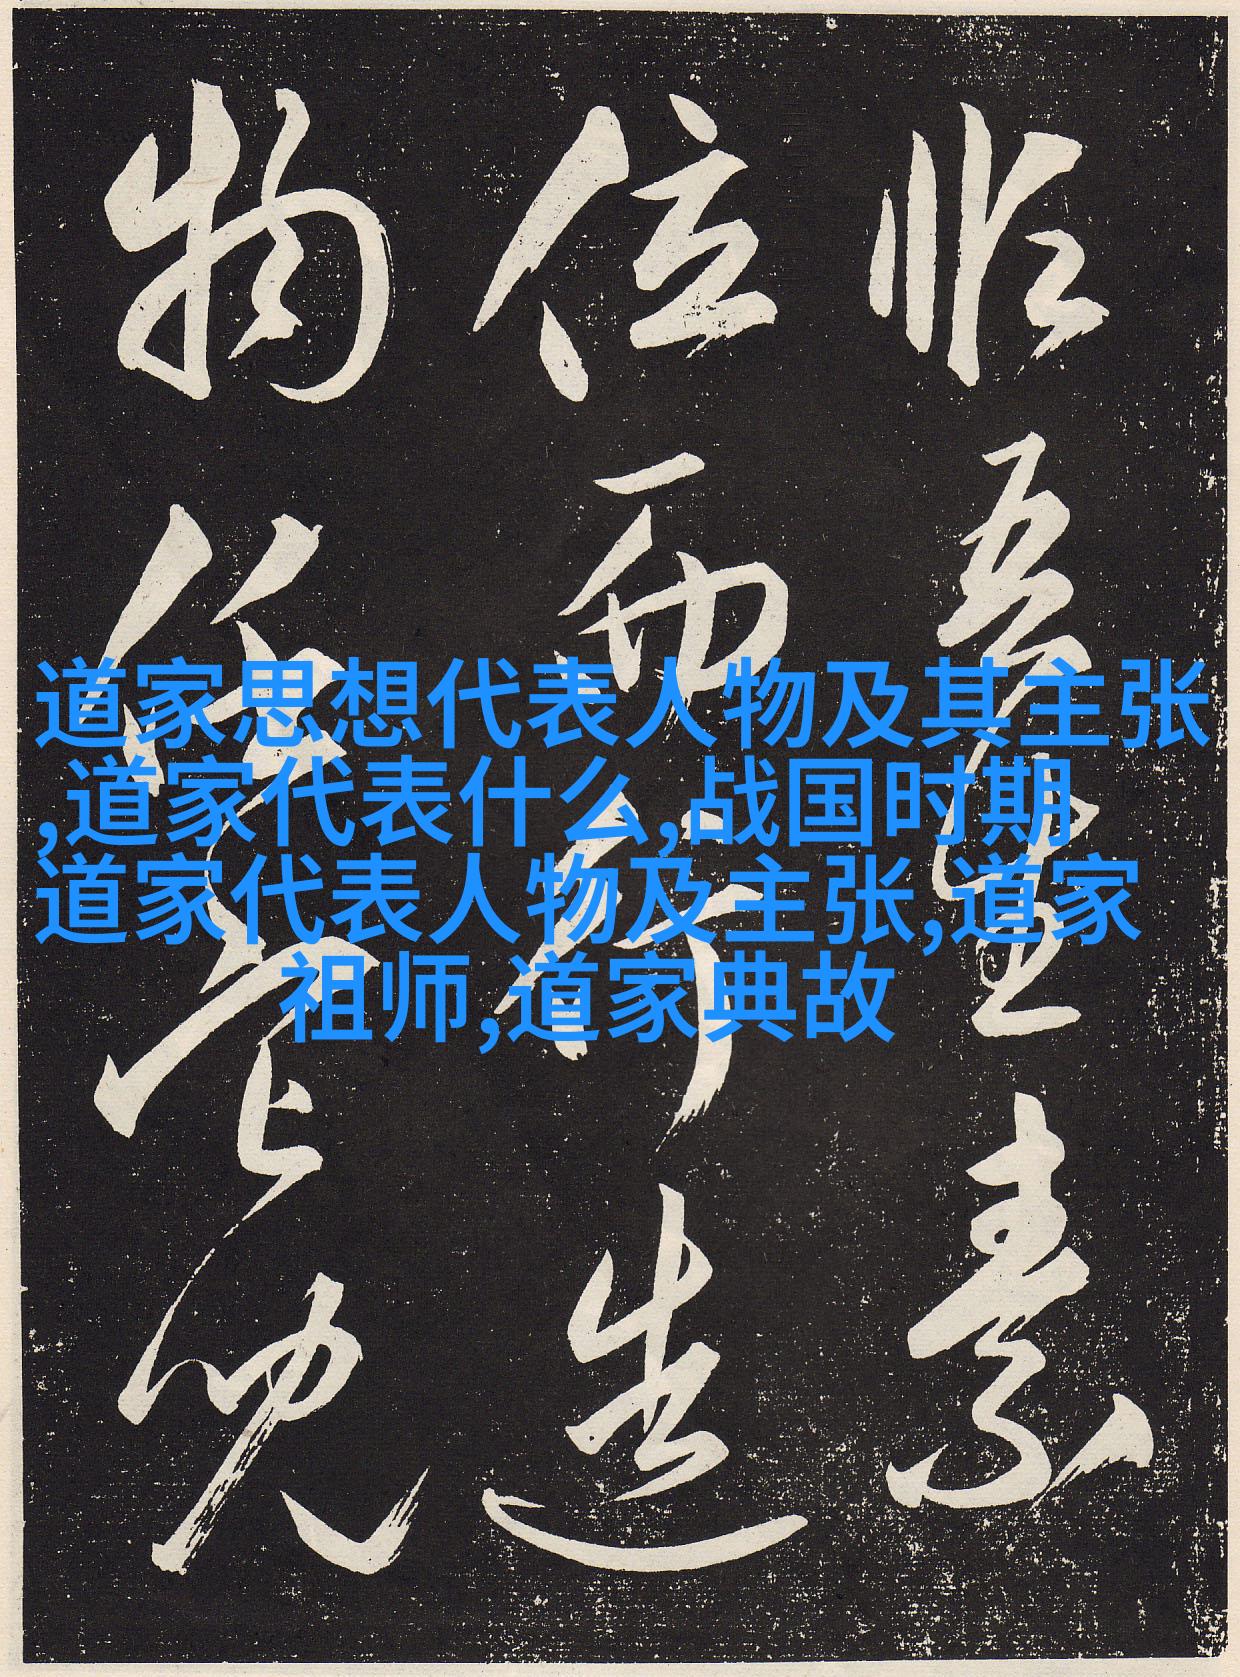 道家思想代表人物及其主张
,道家代表什么,战国时期
道家代表人物及主张,道家
祖师,道家典故
吾生素
位而行造
物